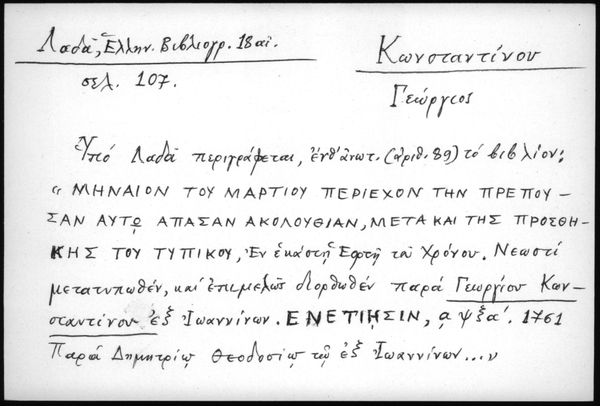 Λαδᾶ, Ἑλλην. Βιβλιογρ. 18 αἰ.
σελ. 107.
Κωνσταντίνου
Γεώργιος
Ὑπό Λαδᾶ περιγράφεται, ἔνθ' ἀνωτ. (ἀριθ. 89) τό βιβλίον:
« ΜΗΝΑΙΟΝ ΤΟΥ ΜΑΡΤΙΟΥ ΠΕΡΙΕΧΟΝ ΤΗΝ ΠΡΕΠΟΥ-
ΣΑΝ ΑΥΤῼ ΑΠΑΣΑΝ ΑΚΟΛΟΥΘΙΑΝ, ΜΕΤΑ ΚΑΙ ΤΗΣ ΠΡΟΣΘΗ-
ΚΗΣ ΤΟΥ ΤΥΠΙΚΟΥ, Ἐν ἑκάστῃ Ἑορτῇ τοῦ Χρόνου. Νεωστί
μετατυπωθέν, καί ἐπιμελῶς διορθωθέν παρά Γεωργίου Κων-
σταντίνου ἐξ Ἰωαννίνων. ΕΝΕΤΙΗΣΙΝ, αψξα΄. 1761
Παρά Δημητρίῳ Θεοδοσίῳ τῷ ἐξ Ἰωαννίνων...ν